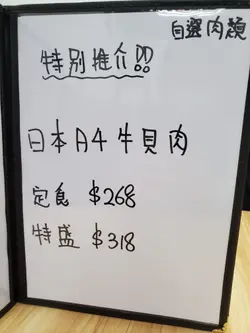 自選肉類
特别推介!!
日本A4牛貝肉
定食 $268
特盛 $318